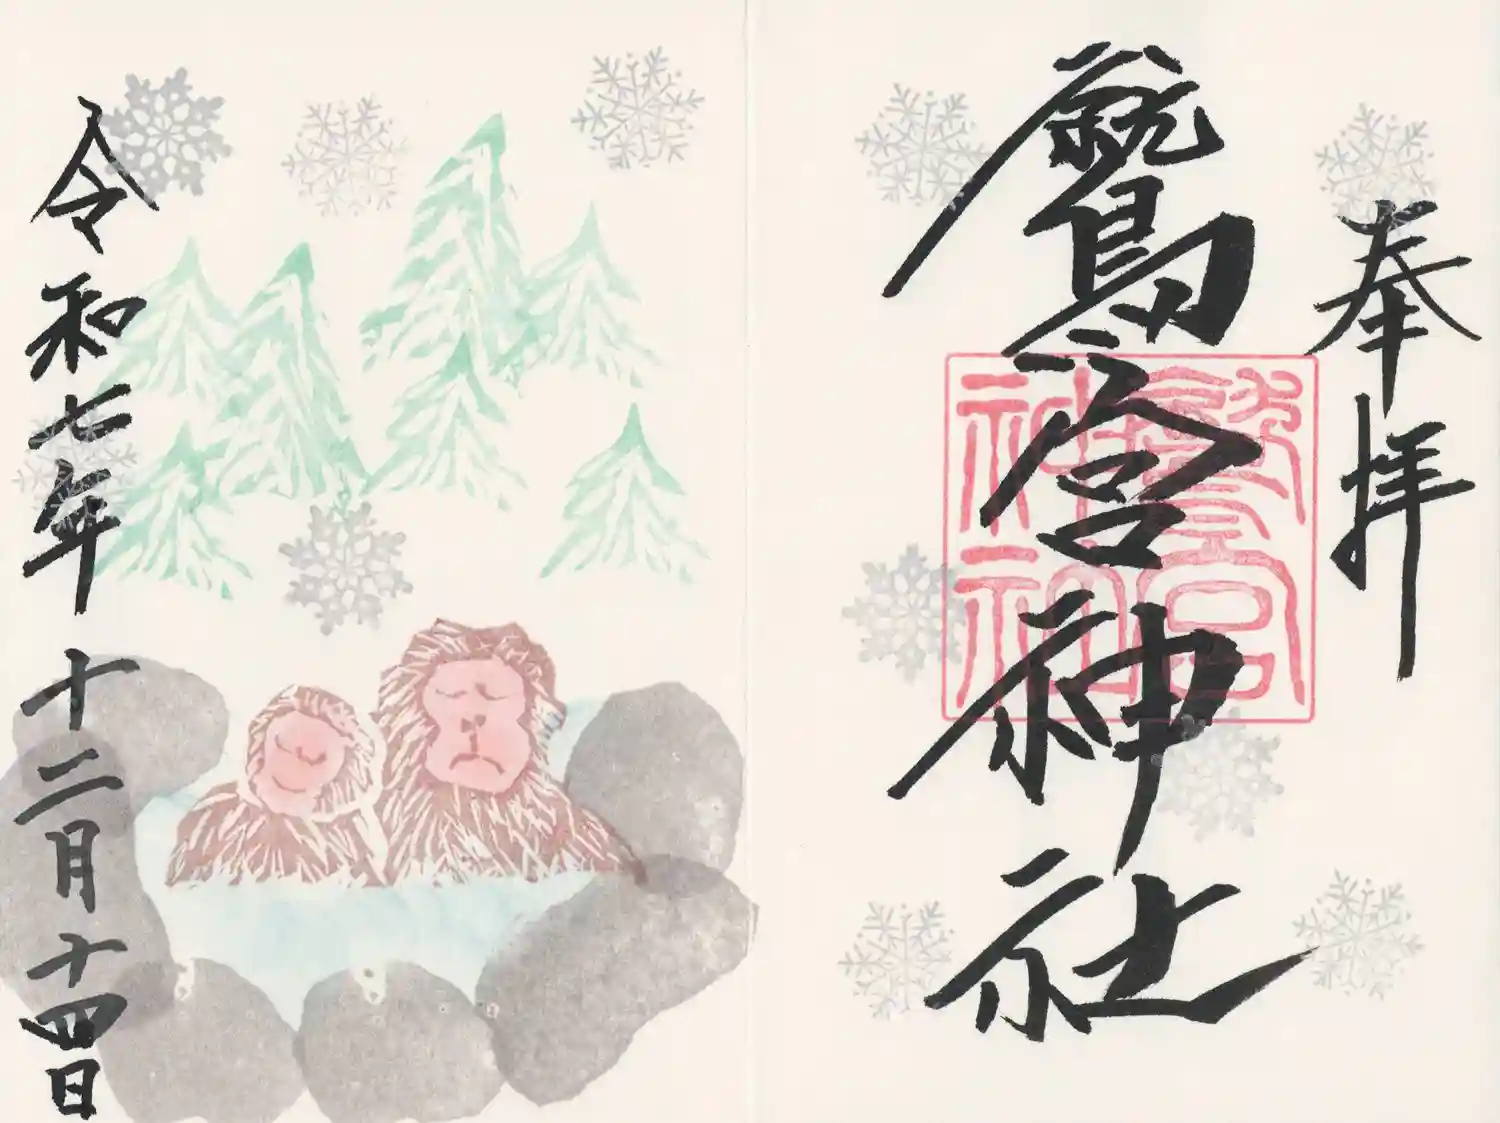 奉拝
鷲宮神社
鷲宮
神社
令和七年十二月十四日